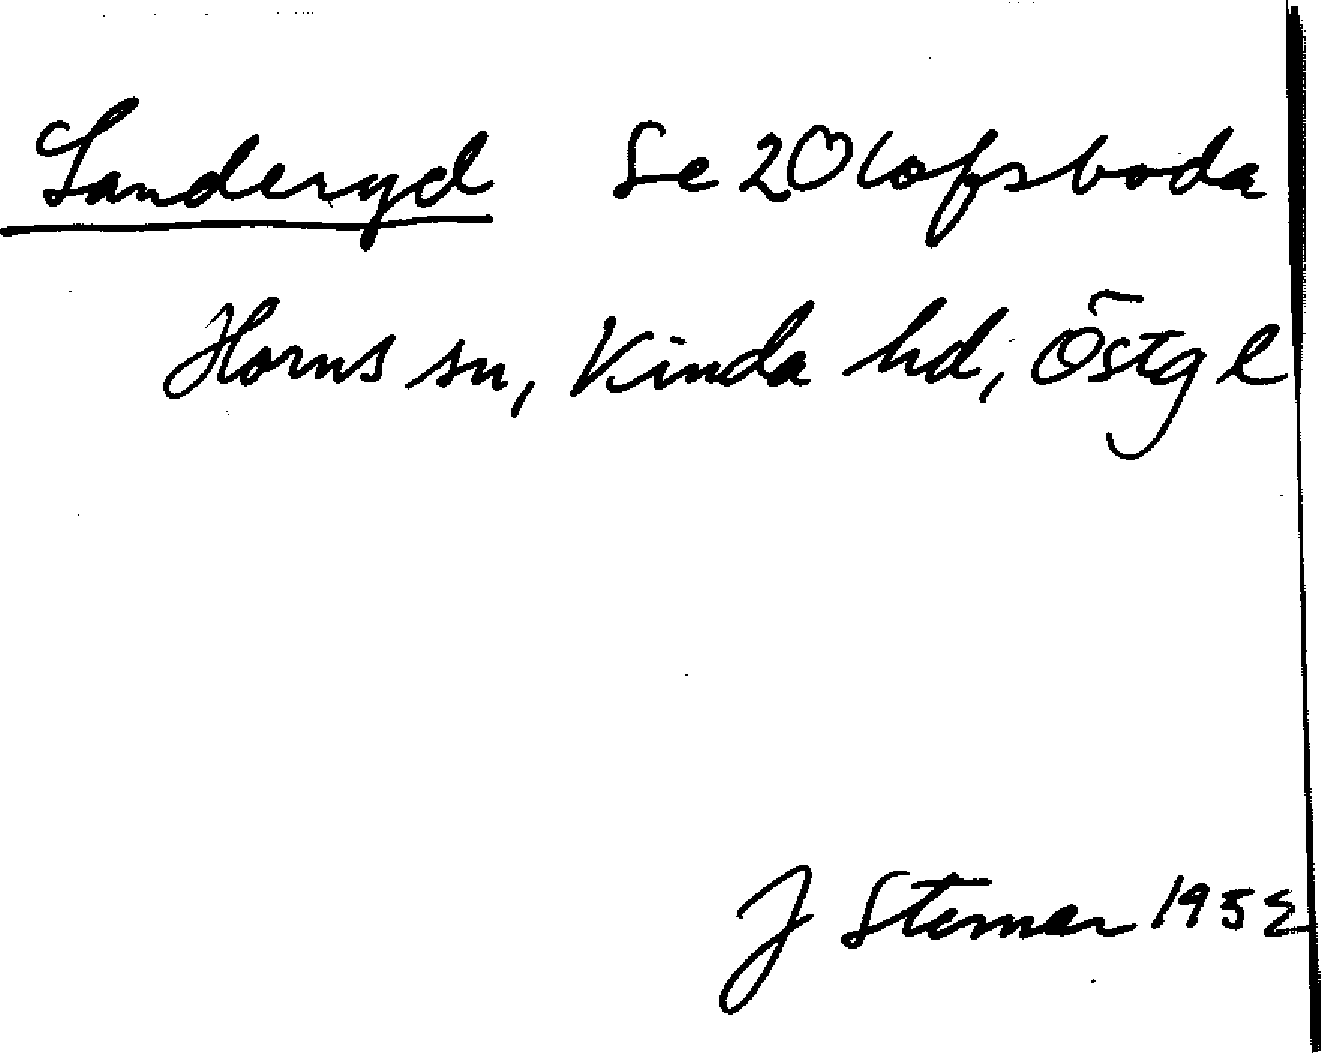 Sanderyd Se 2 Olofsboda
Horns sn, Kinda hd, Östgl
J Stemar